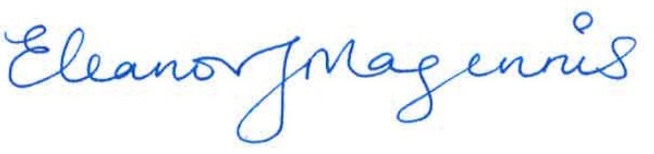 Eleanor J Magennis